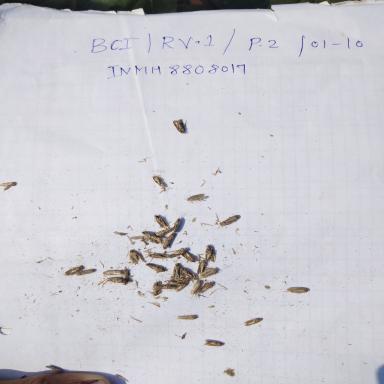 BCI / RV.1 / P.2 / 01-10
INMH8808017